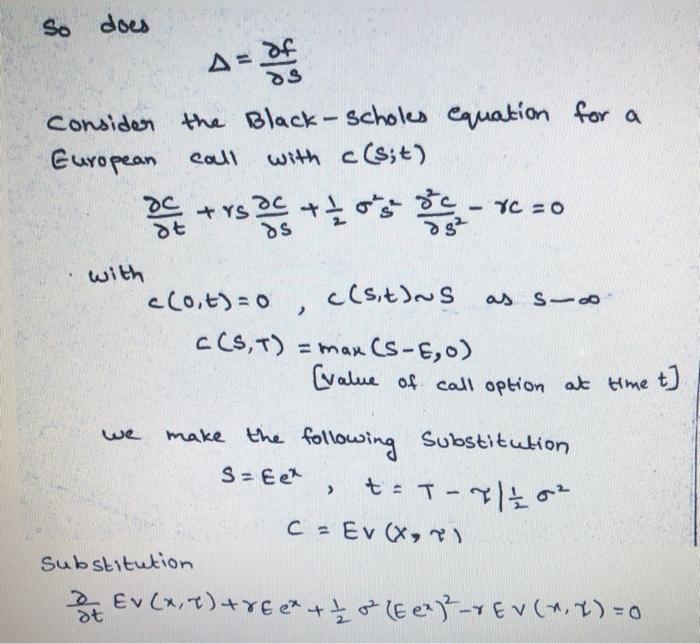 So does
Δ = ∂f/∂S
Consider the Black-Scholes equation for a
European call with c(S;t)
∂c/∂t + rS ∂c/∂S + 1/2 σ²S² ∂²c/∂S² - rc = 0
with
c(0,t)=0 , c(S,t)~S as S—∞
c(S,T) = max(S-E,0)
[value of call option at time t]
we make the following Substitution
S = Ee^x , t = T - τ|1/2 σ²
C = EV(x,τ)
Substitution
∂/∂t EV(x,τ)+rEe^x + 1/2 σ²(Ee^x)²-rEV(x,τ)=0